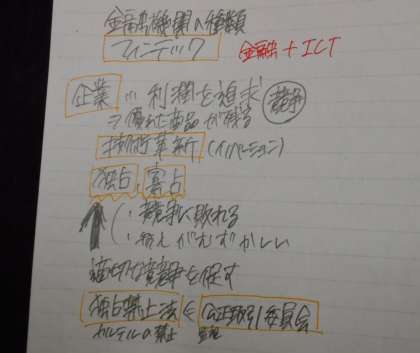 金融機関の種類
フィンテック 金融+ICT
企業 … 利潤を追求 競争
⇒優れた商品が残る
技術革新 (イノベーション)
独占、寡占
・競争に敗れる
・参入がむずかしい
適切な競争を促す
独占禁止法 ⇐ 公正取引委員会
カルテルの禁止 監視